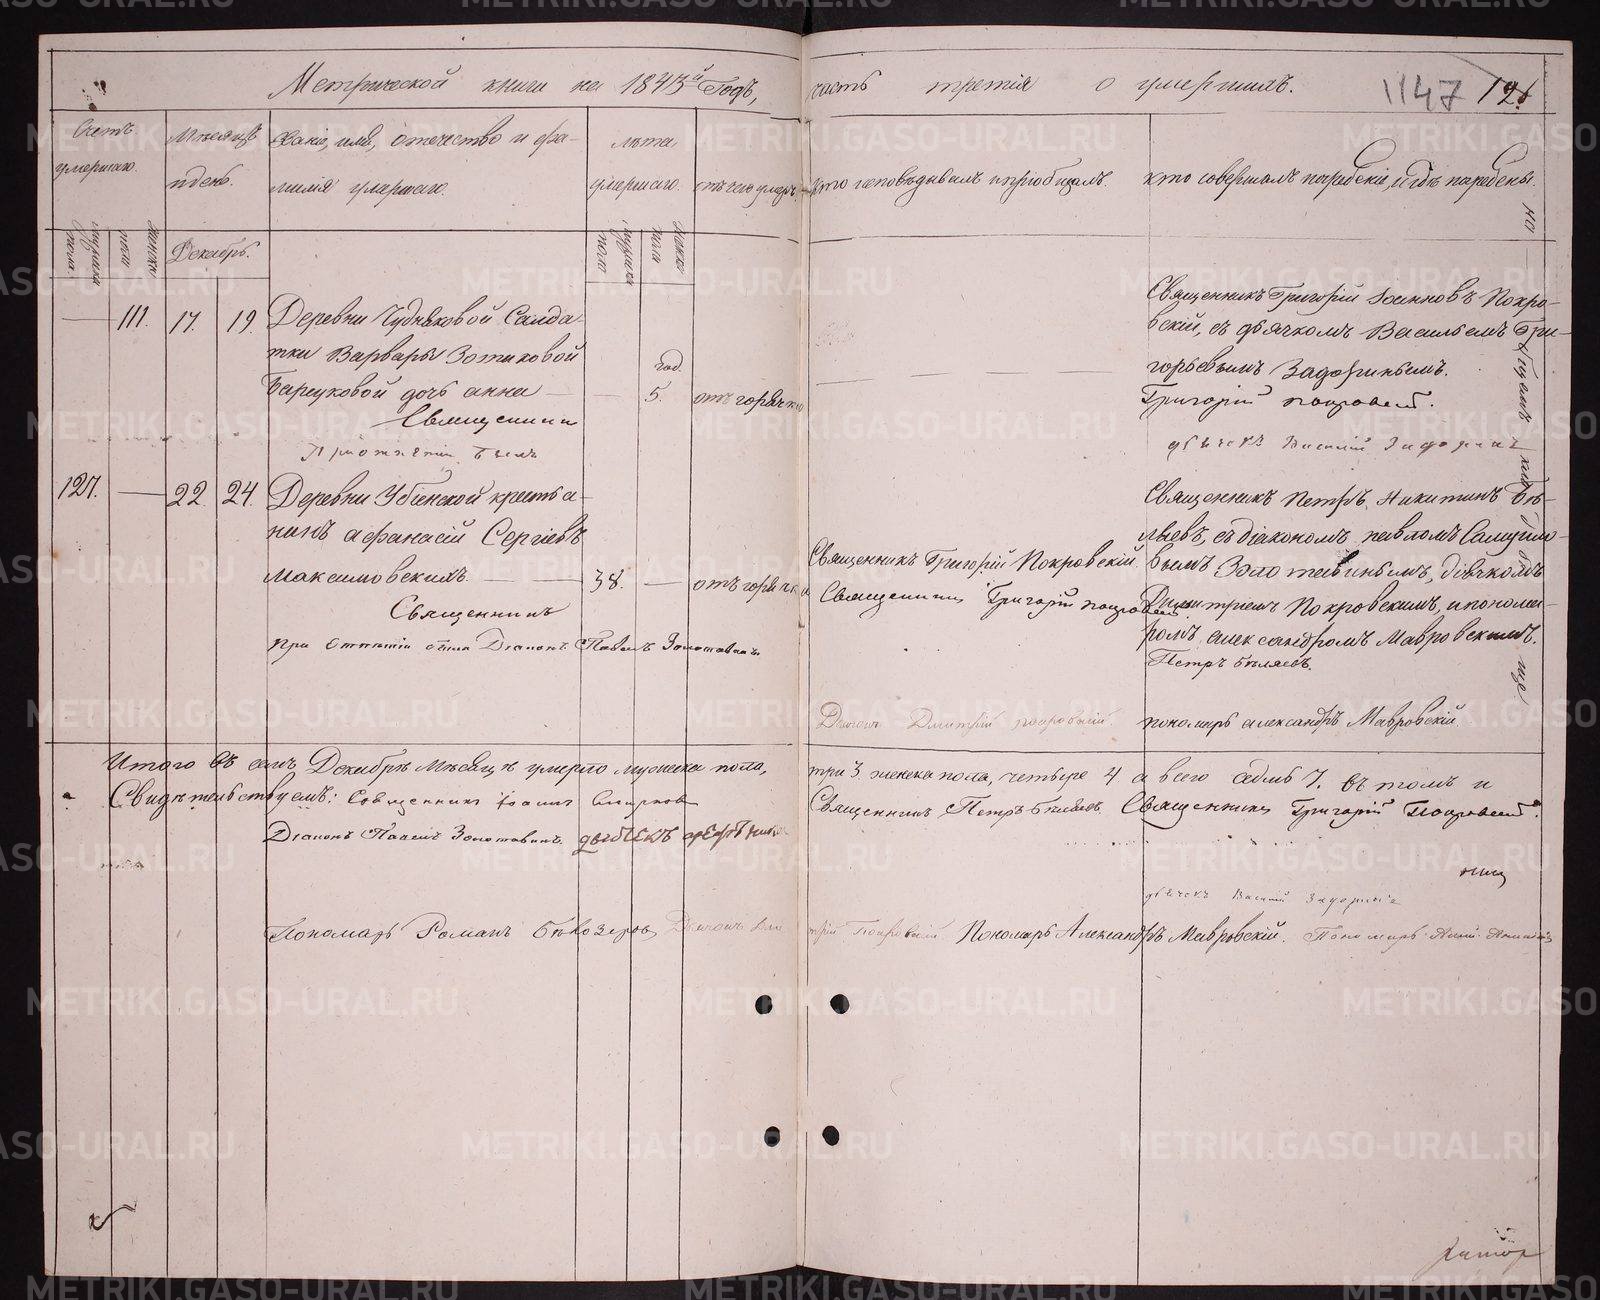 Метрической книги на 1843й Годъ, часть третія о умершихъ.
1147
Счетъ умершаго.
Мѣсяцъ и день.
Званіе, имя, отечество и фамилія умершаго.
лѣта умершаго.
отъ чего умеръ
кто исповѣдывалъ и пріобщалъ.
кто совершалъ погребеніе, и гдѣ погребены.
мужеска пола
женска пола
Декабрь.
мужеска пола
женска пола
111. 17. 19. Деревни Чудняковой Салда-
тки Варвары Зотиковой
Барсуковой дочь анна
год.
5. отъ горячки
Священникъ
Священникъ Григорій Іоанновъ Покро-
вскій, съ дьячкомъ Васильемъ Гри-
горьевымъ Задоринымъ.
Григорій покровскій.
дьячекъ Василій Задоринъ
127. 22. 24. Деревни Убіенской крестья-
нинъ афанасій Сергіевъ
Максимовскихъ 38. отъ горячки
Священникъ
при отпѣтіи былъ Діаконъ Павелъ Золотавинъ
Священникъ Григорій Покровскій.
Священникъ Григорій покровскій
Священникъ Петръ Никитинъ Бѣ-
ляевъ, съ діакономъ павломъ Самуило-
вымъ Золотавинымъ, дьячкомъ
Димитріемъ Покровскимъ, и понома-
ромъ александромъ Мавровскимъ.
Петръ Бѣляевъ.
Дьячекъ Дмитрій покровскій.
пономарь александръ Мавровскій.
Итого въ семъ Декабрѣ мѣсяцѣ умерло мужеска пола, три 3 женска пола, четыре 4 а всего седмь 7. въ томъ и
Свидѣтельствуемъ: Священникъ Іоаннъ Смирновъ Священникъ Петръ Бѣляевъ. Священникъ Григорій Покровскій.
Діаконъ Павелъ Золотавинъ. дьячекъ
дьячекъ Василій Задоринъ
Пономарь Романъ Бѣлозеровъ Дьячекъ Дмитрій Покровскій. Пономарь Александръ Мавровскій. Пономарь